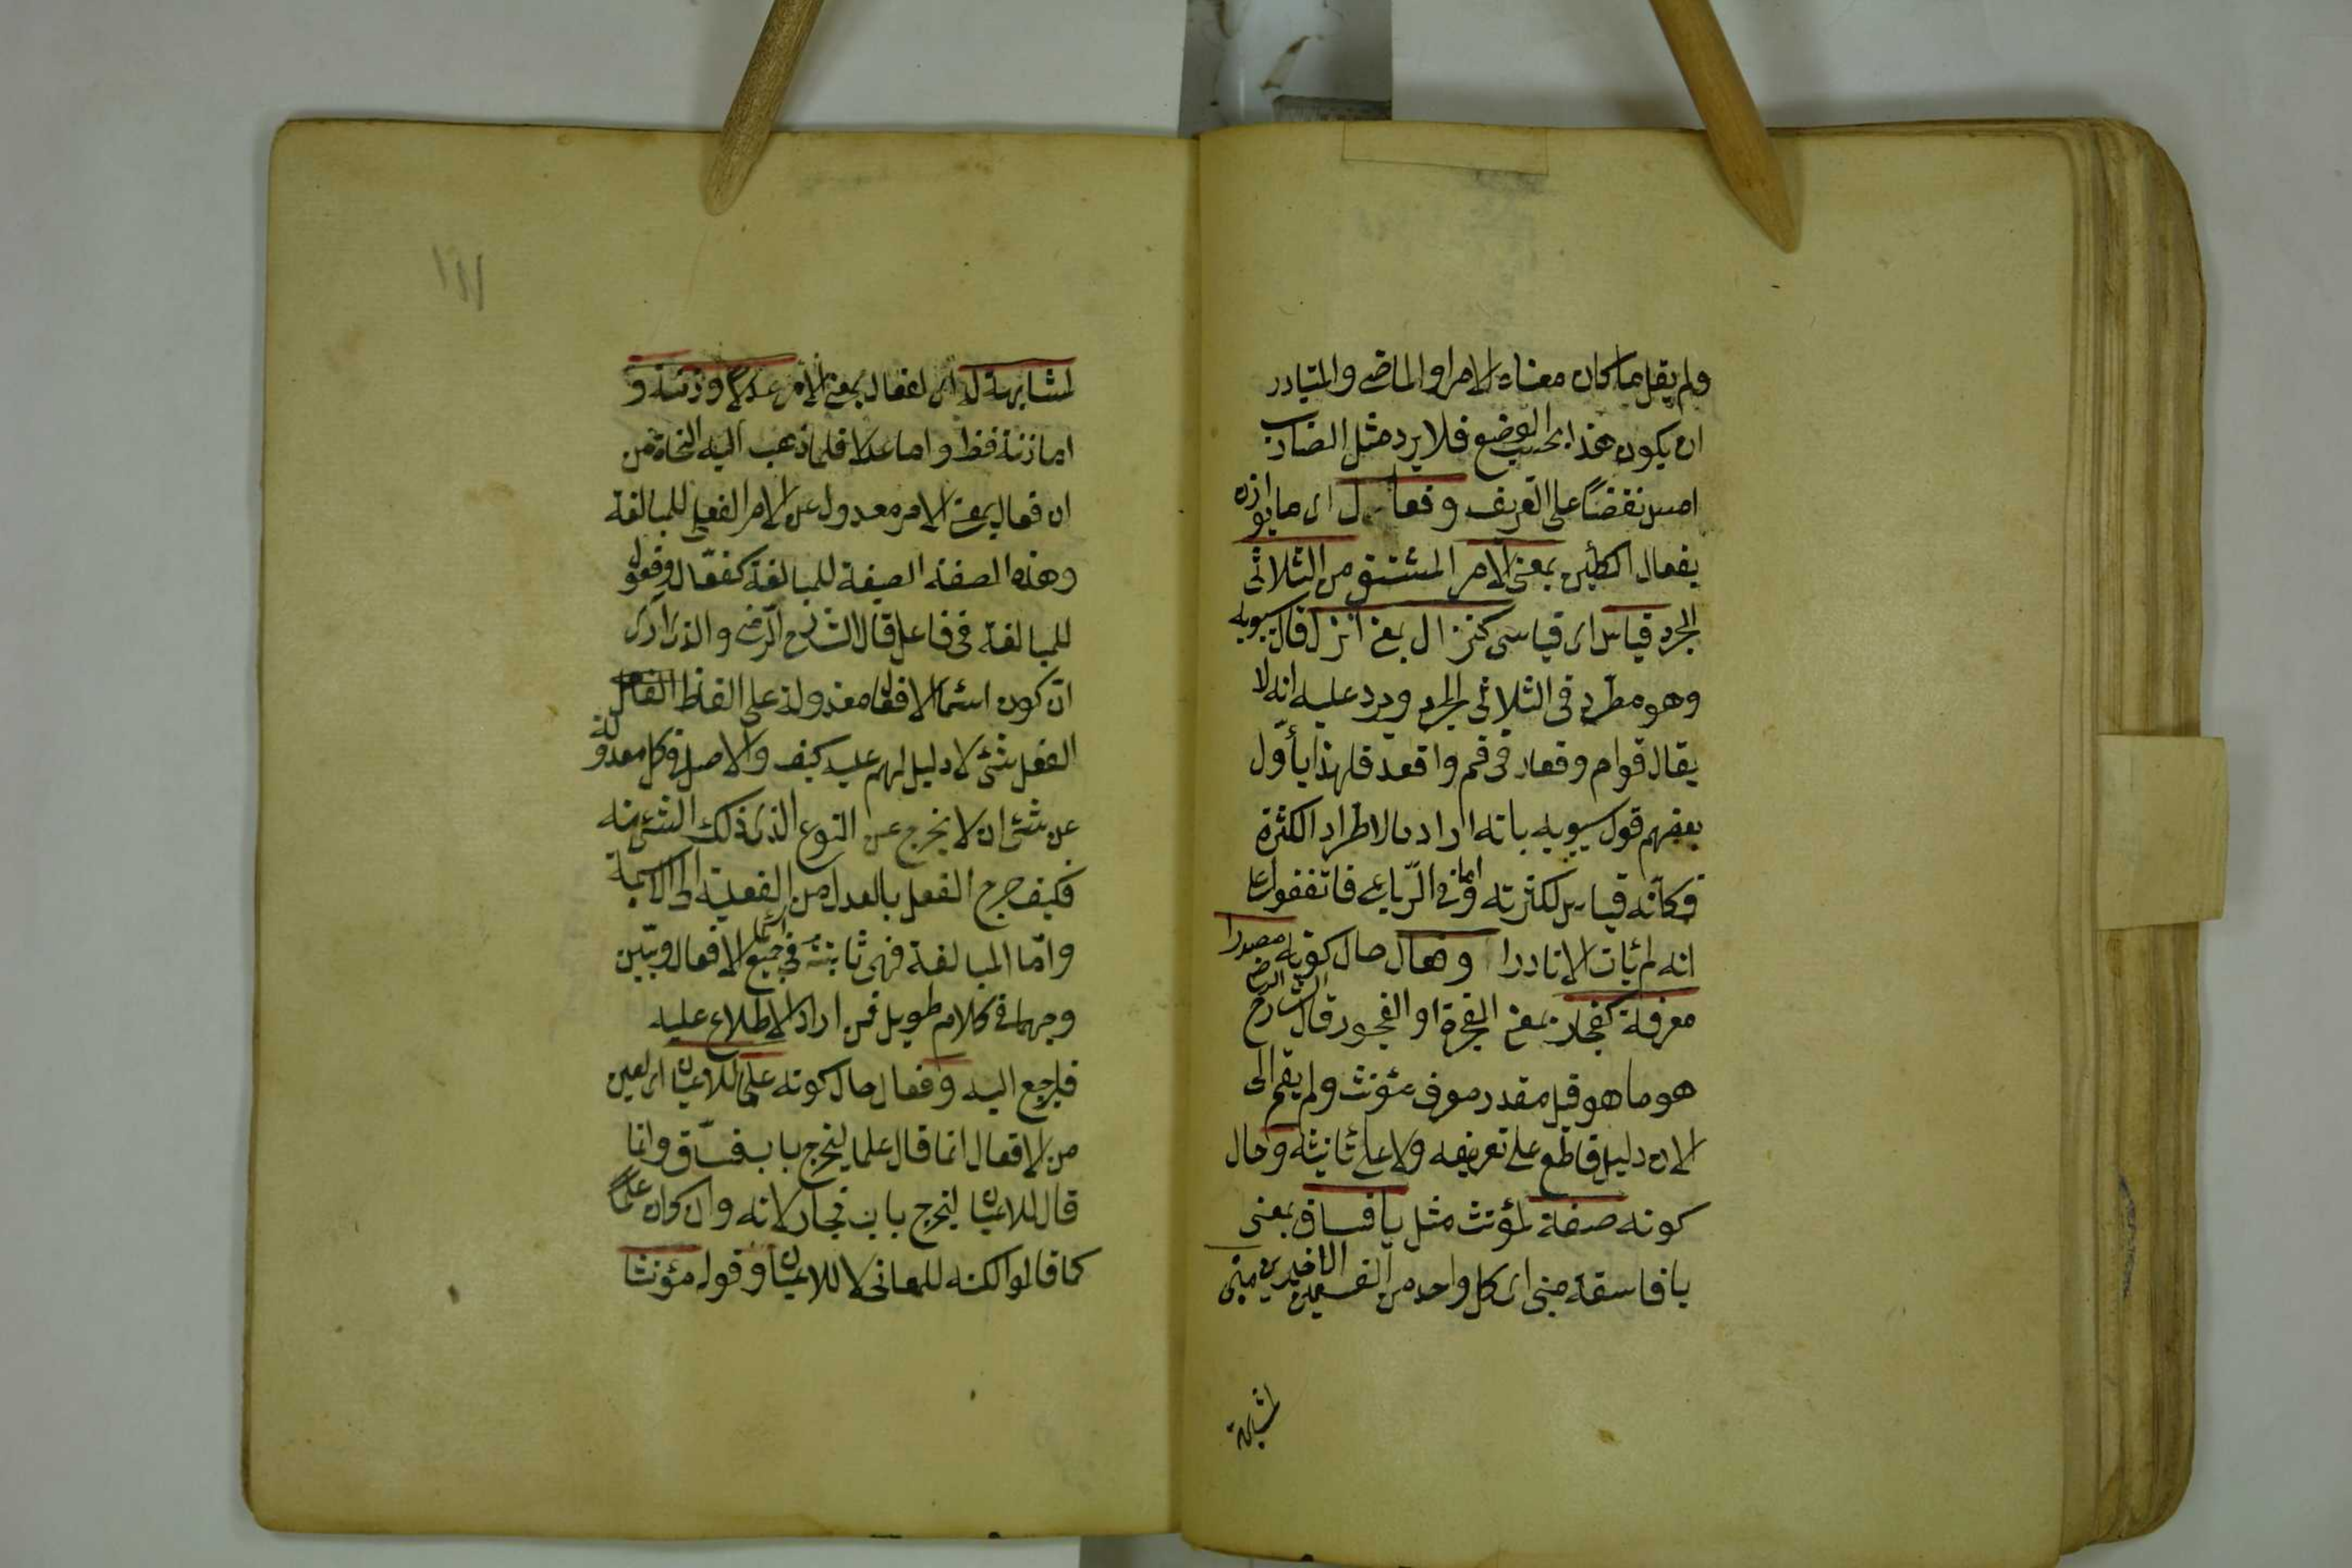 ولم يقل ما كان معناه الامر او الماضى والمتبادر
ان يكون هذا بحسب الوضع فلا يرد مثل الضارب
امس نقضًا على التعريف وفعال اى ما يوازن
بفعال الكائن بمعنى الامر المشتق من الثلاثى
المجرد قياس اى قياسى كنزال بمعنى انزل قال سيبويه
وهو مطرد فى الثلاثى المجرد ويرد عليه انه لا
يقال قوام وقعاد فى قم واقعد فلهذا يأوّل
بعضهم قول سيبويه بانه اراد بالاطراد الكثرة
فكانّه قياس لكثرته واما فى الرّباعى فاتفقوا على
انه لم يأت الا نادرا وفعال حال كونه مصدرا
معرفة كفجار بمعنى الفجرة او الفجور قال الشارح الرضى
هو ما هو قيل مقدر معرف مؤنث ولم يقم الى
الان دليل قاطع على تعريفه ولا على تانيثه وحال
كونه صفة لمؤنث مثل يا فساق بمعنى
يا فاسقة مبنى اى كل واحد من القسمين الاخيرين مبنى
لمشابهة
١١١
لمشابهته له اى لفعال بمعنى الامر عدلا وزنة و
اما زنة فظ واما عدلا فلما ذهب اليه النحاة من
ان فعال بمعنى الامر معدول عن الامر الفعلى للمبالغة
وهذه الصفة الصيغة للمبالغة كفعّال وفعول
للمبالغة فى فاعل قال الشارح الرّضى والذى ارى
انّ كون اسماء الافعال معدولة على الفاظ
الفعل شئ لا دليل لهم عليه كيف والاصل فى كل معدولة
عن شئ ان لا يخرج عن النوع الذى ذلك الشئ منه
فكيف خرج الفعل بالعدل من الفعلية الى الاسمية
وامّا المبالغة فهى ثابتة فى جميع اسماء الافعال وبيّن
وجهها فى كلام طويل فمن اراد الاطلاع عليه
فليرجع اليه وفعال حال كونه علما للاعيان اى لعين
من الافعال انما قال علما ليخرج باب فسّاق وانما
قال للاعيان ليخرج باب فجار لانه وان كان علمًا
كما قالوا لكنه للمعانى لا للاعيان وقوله مؤنثا